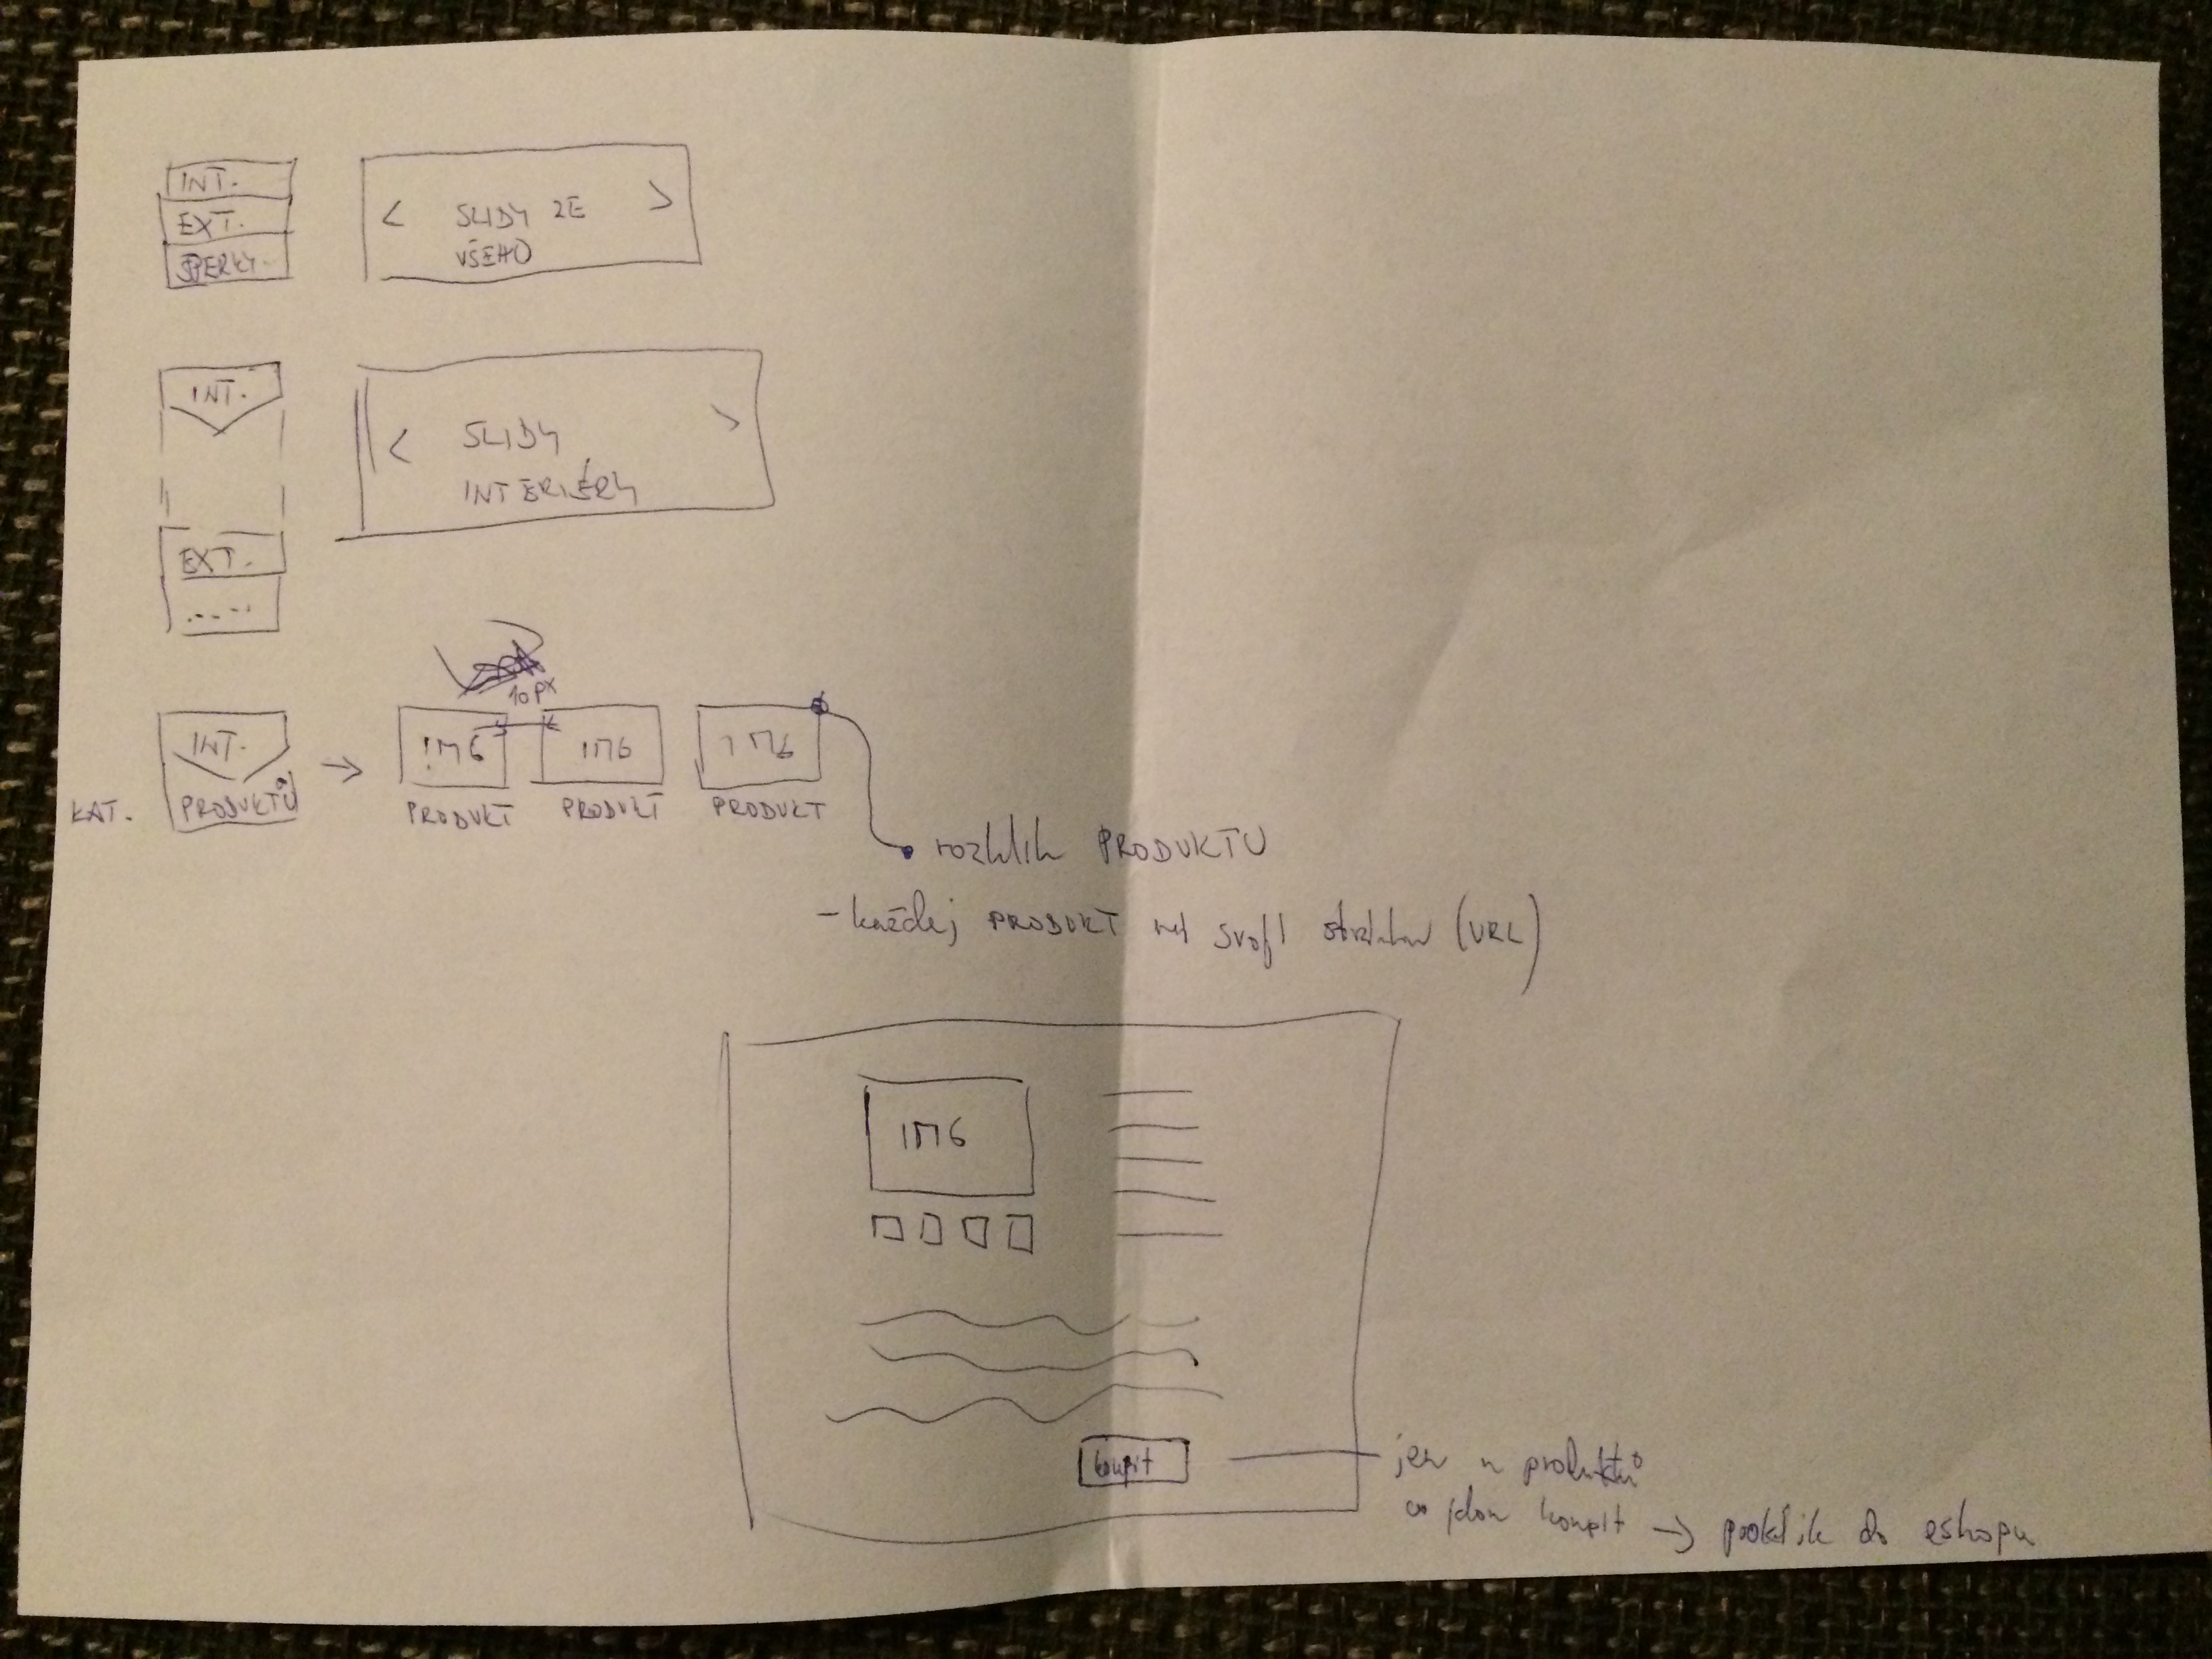 INT.
EXT.
ŠPERKY.
< SLIDY ZE >
VŠEHO
INT.
< SLIDY >
INTERIÉRY
EXT.
.....
KAT.
INT.
PRODUKTŮ
→
IMG
10 px
IMG
IMG
PRODUKT
PRODUKT
PRODUKT
• rozklik PRODUKTU
- každej PRODUKT má svojí stránku (URL)
IMG
koupit
jen u produktů
co jdou koupit → proklik do eshopu